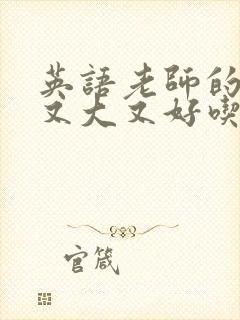 英語老師的
又大又好喫
官箴